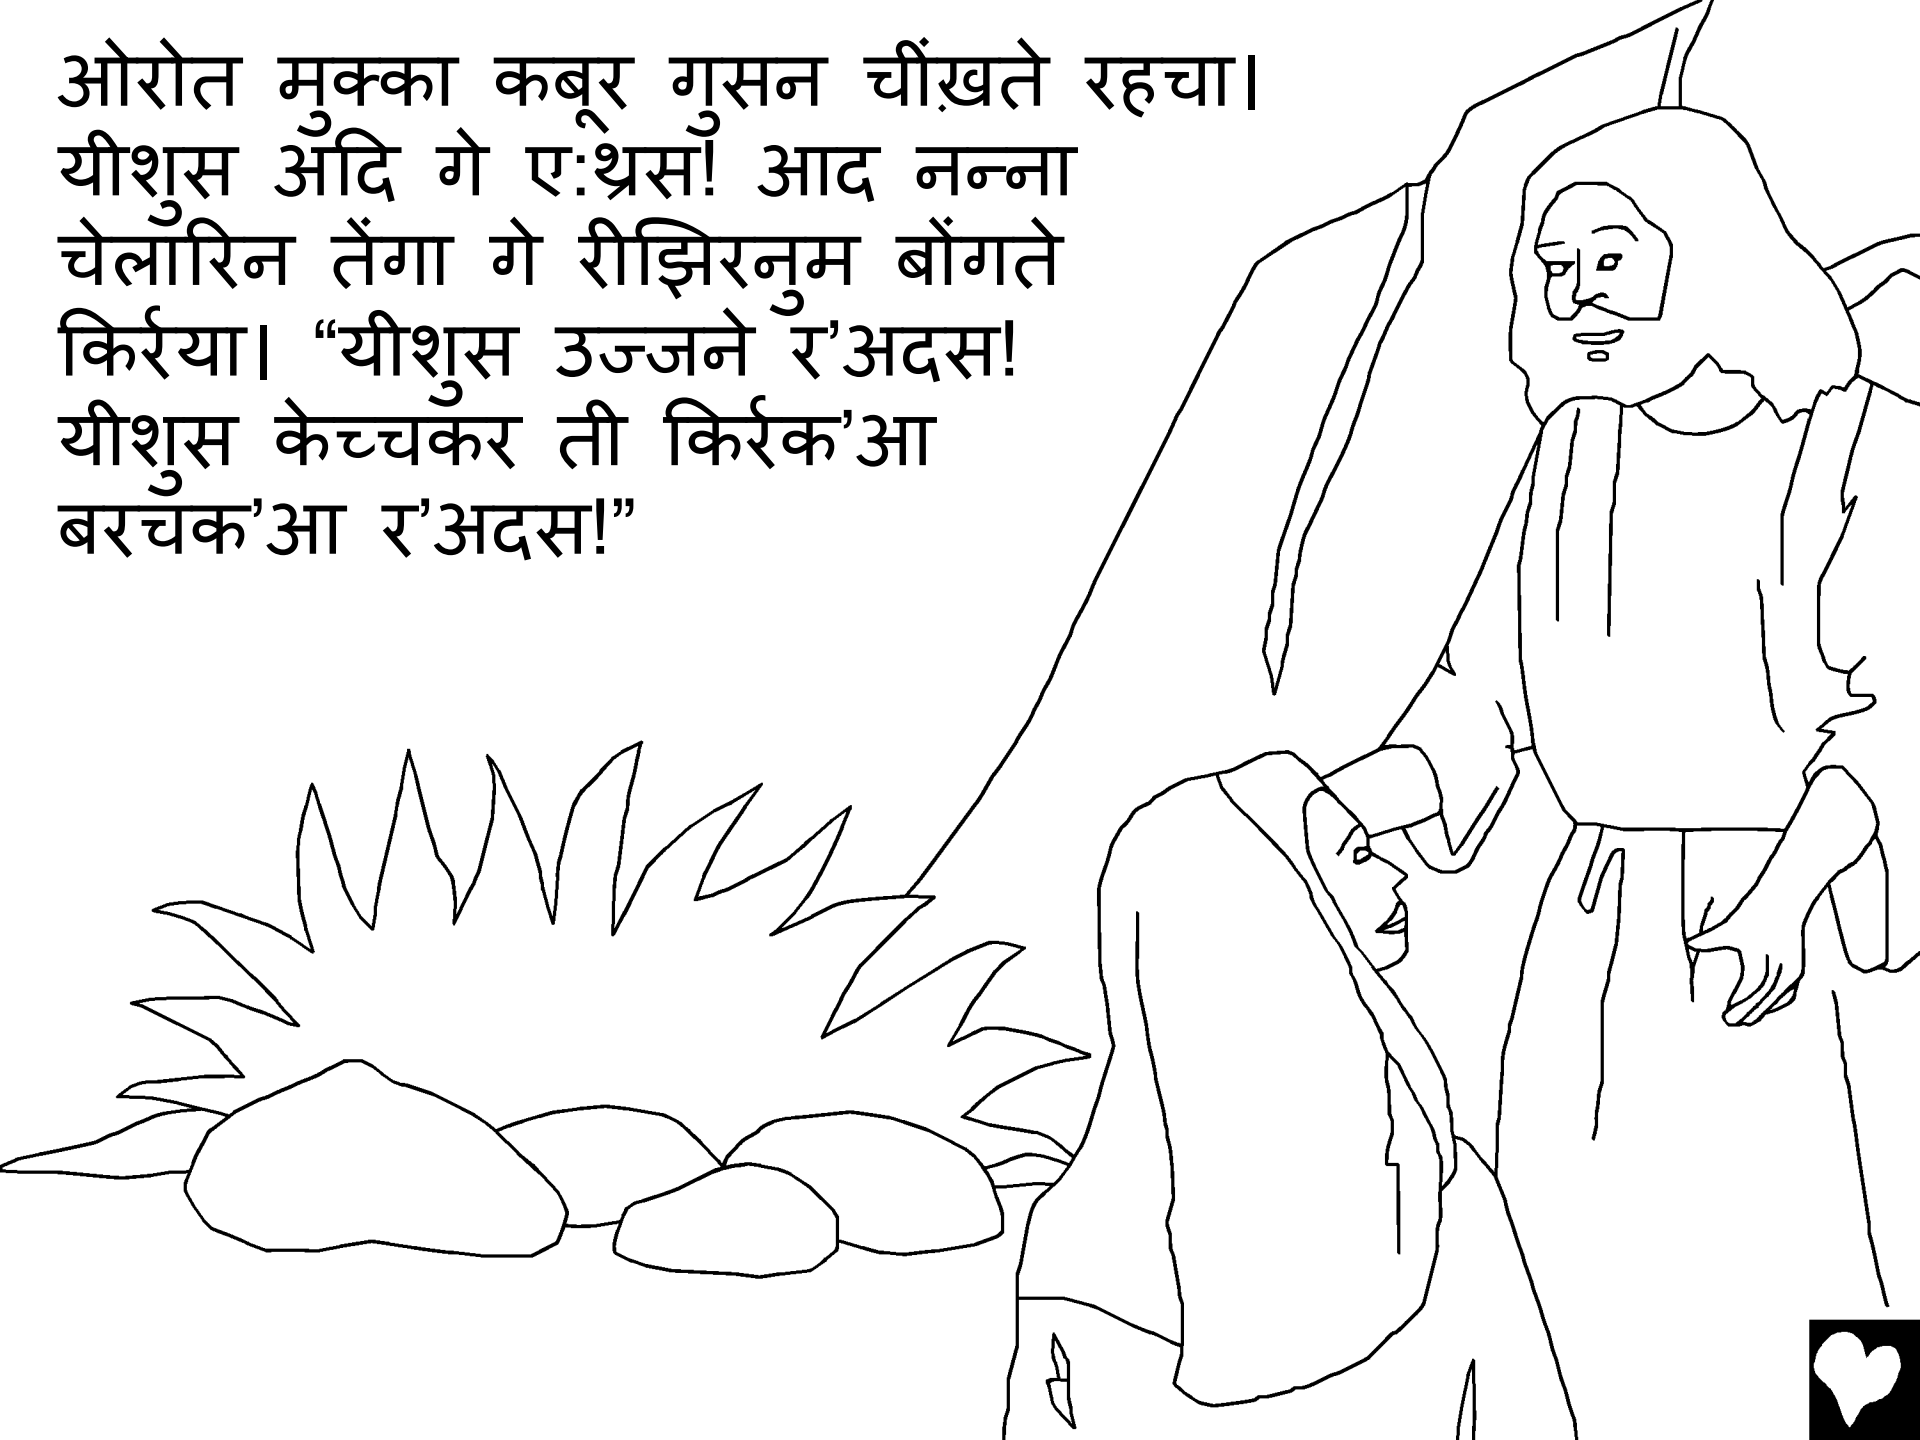 ओरोत मुक्का कबूर गुसन चींख़ते रहचा।
यीशुस अदि गे ए:थ्रस! आद नन्ना
चेलारिन तेंगा गे रीझिरनुम बोंगते
किर्रया। “यीशुस उज्जने र’अदस!
यीशुस केच्चकर ती किर्रक’आ
बरचक’आ र’अदस!”